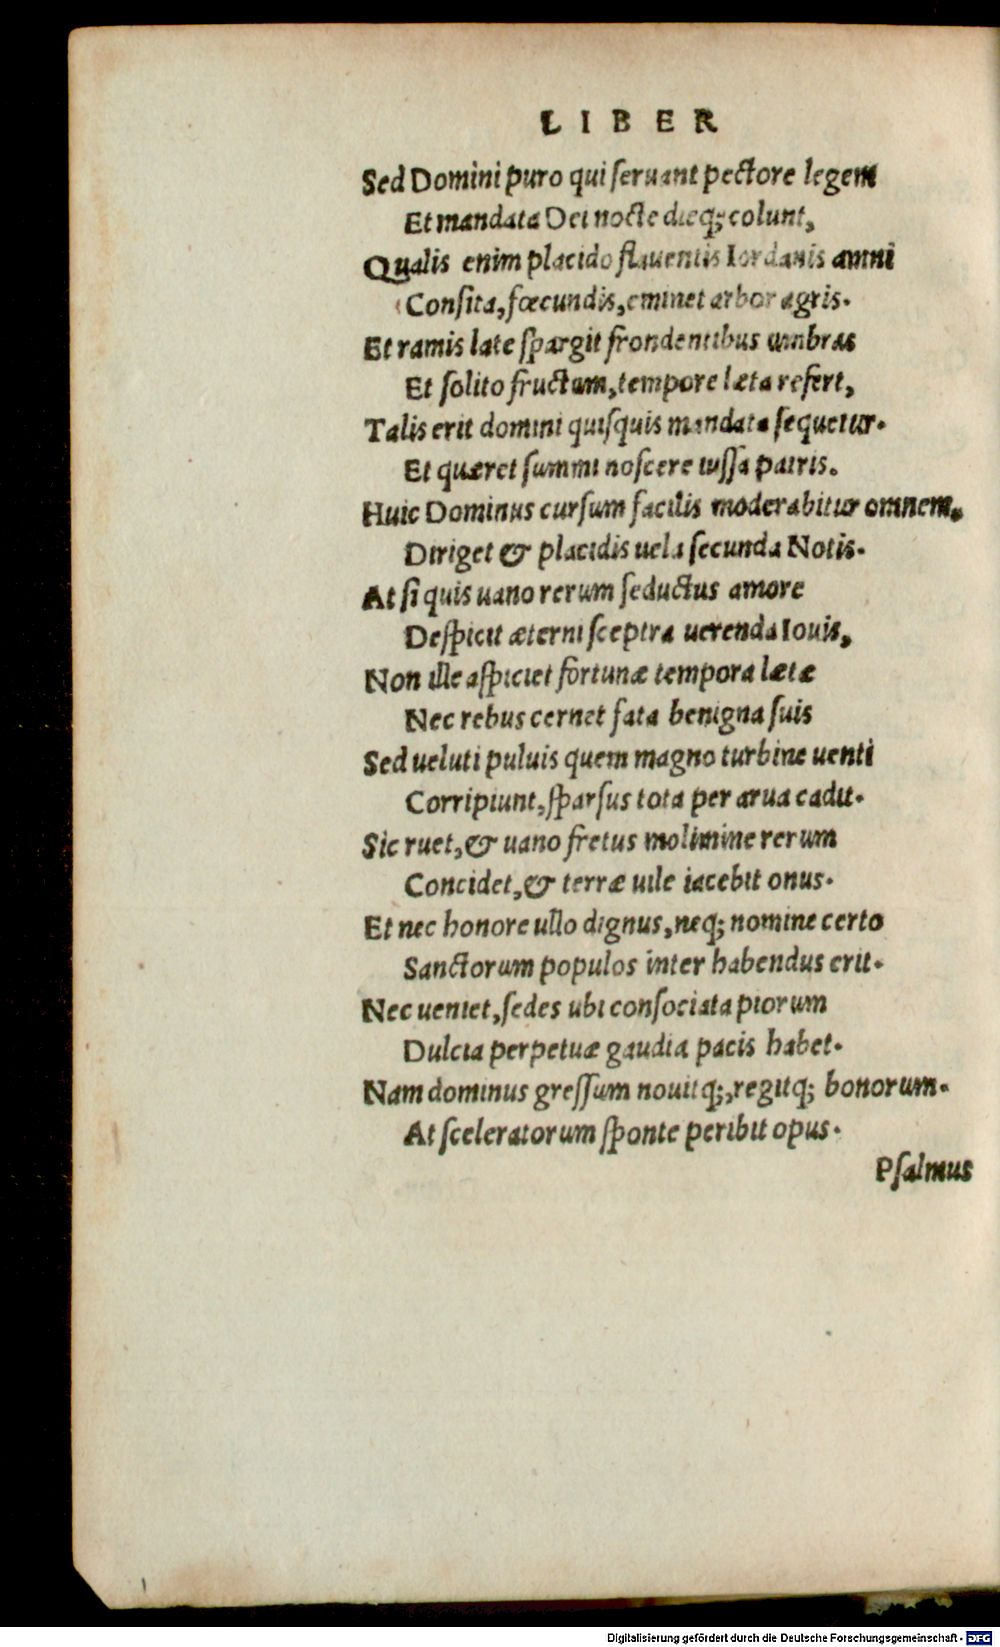 LIBER
Sed Domini puro qui seruant pectore legem
Et mandata Dei nocte dieq; colunt,
Qualis enim placido flauentis Iordanis amni
Consita, fœcundis, eminet arbor agris.
Et ramis late spargit frondentibus umbras
Et solito fructum, tempore læta refert,
Talis erit domini quisquis mandata sequetur.
Et quæret summi noscere iussa patris.
Huic Dominus cursum facilis moderabitur omnem,
Diriget & placidis uela secunda Notis.
At si quis uano rerum seductus amore
Despicit æterni sceptra uerenda Iouis,
Non ille aspiciet fortunæ tempora lætæ
Nec rebus cernet fata benigna suis
Sed ueluti puluis quem magno turbine uenti
Corripiunt, sparsus tota per arua cadit.
Sic ruet, & uano fretus molimine rerum
Concidet, & terræ uile iacebit onus.
Et nec honore ullo dignus, neq; nomine certo
Sanctorum populos inter habendus erit.
Nec ueniet, sedes ubi consociata piorum
Dulcia perpetuæ gaudia pacis habet.
Nam dominus gressum nouitq;, regitq; bonorum.
At sceleratorum sponte peribit opus.
Psalmus
Digitalisierung gefördert durch die Deutsche Forschungsgemeinschaft - DFG